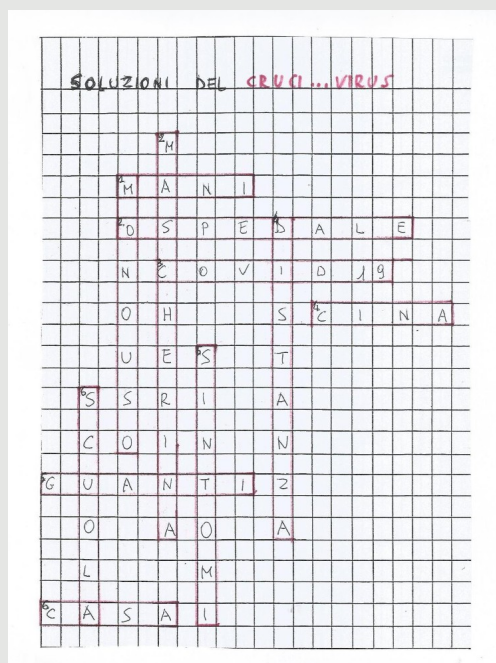 SOLUZIONI DEL CRUCI...VIRUS
2M
1M A N I
2O S P E 4D A L E
N 3C O V I D 19
O H S 4C I N A
U E 5S T
6S S R I A
C O I N N
G U A N T I Z
O A O A
L M
6C A S A I